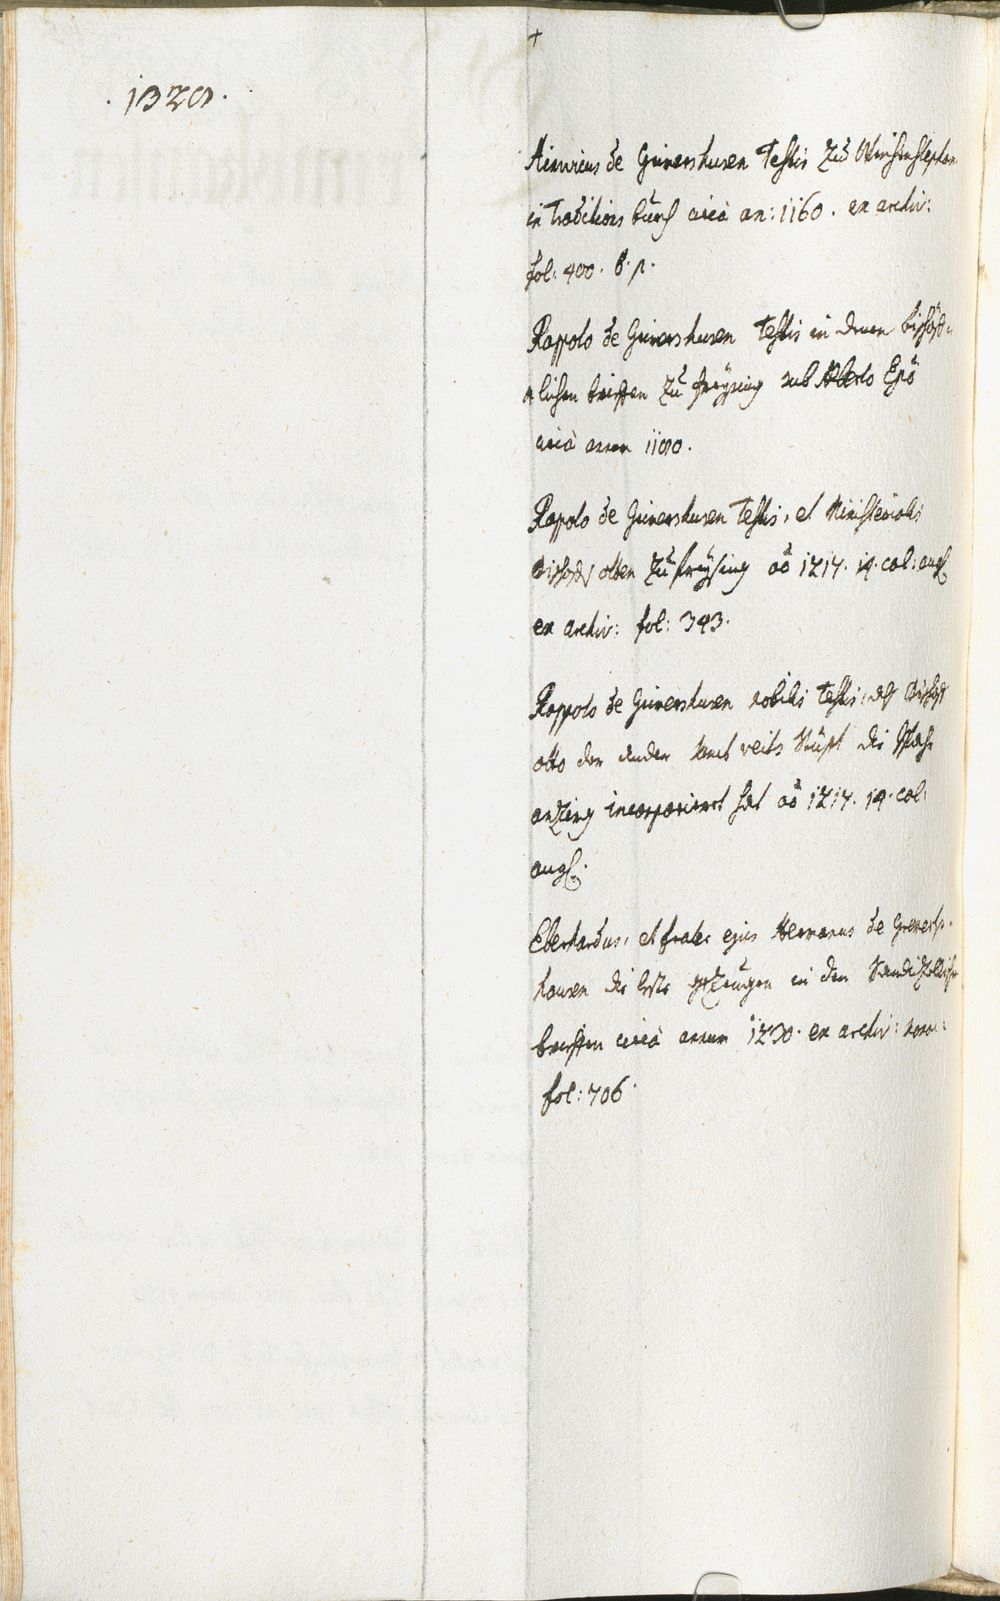 . 1320 .
+
Heinricus de Grivershusen Testis zu Weichenstephan
in traditions buech circà an: 1160 . ex archiv:
fol: 400 . b . p .
Rappolo de Grivershusen Testis in denen bischöf-
lichen brieffen zu freysing sub Alberto Epo
circà annum 1180 .
Rapolo de Grivershusen Testis, et Ministerialis
Bischoffs otten zu freysing ao 1217 . 14 . cal: aug.
ex archiv: fol: 343 .
Rappolo de Grivershusen nobilis Testis, als Bischoff
otto der ander sanct veits Stüfft die Pfarr
anzing incorporieret hat ao 1217 . 14 . cal:
aug.
Eberhardus, et frater ejus Hermanus de Greverts-
hausen die erste gezeugen in den
brieffen circà annum 1230 . ex archiv:
fol: 706 .